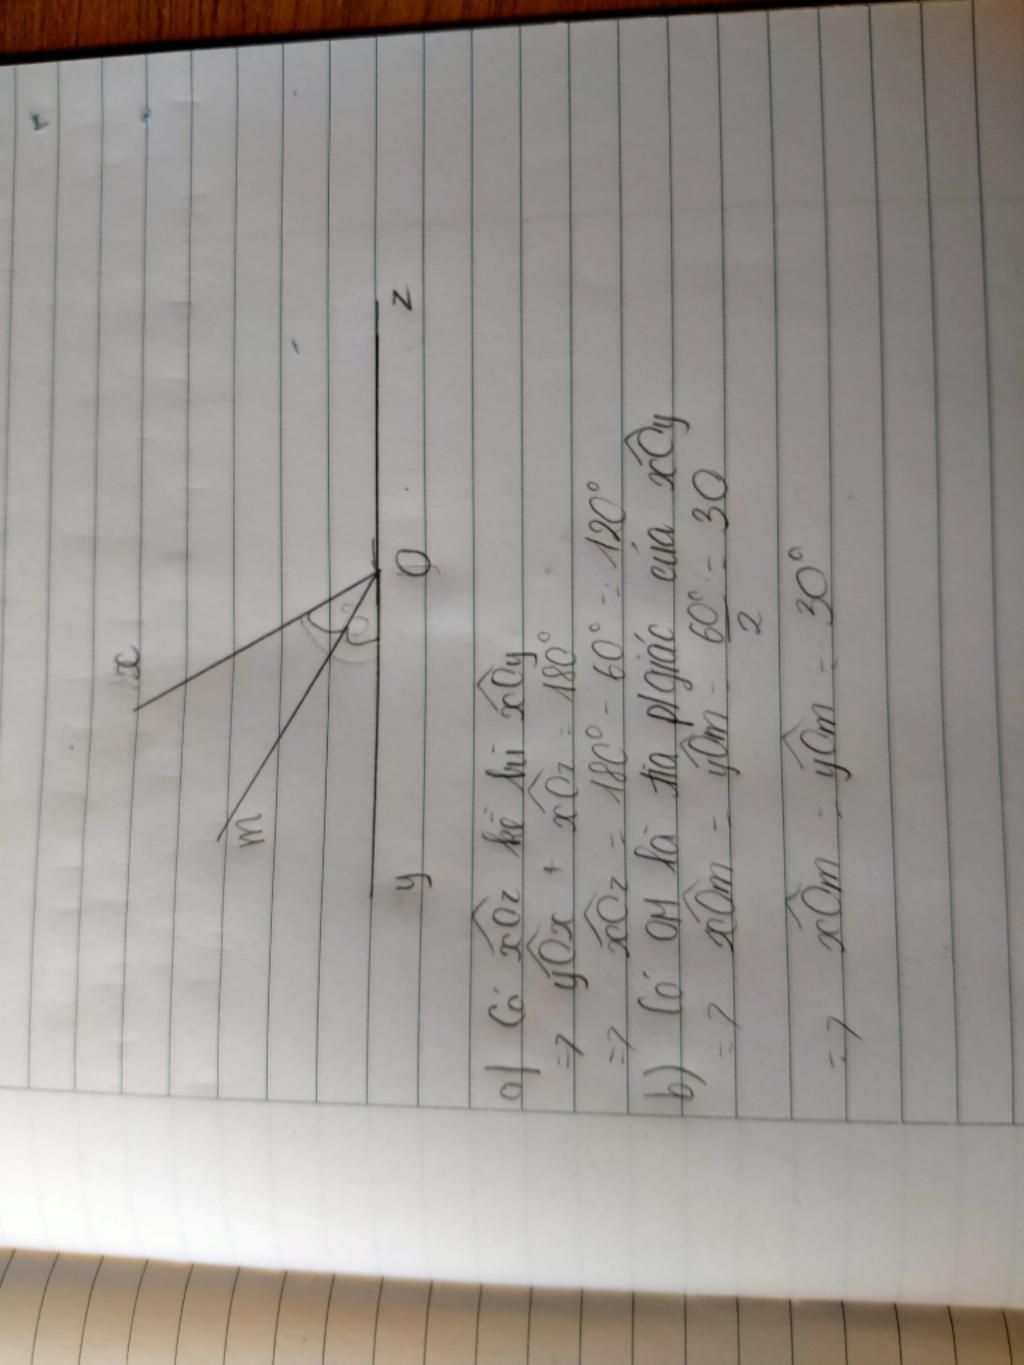 x
m
y O z
a) Có xOz kề bù xOy
=> yOx + xOz = 180°
=> xOz = 180° - 60° = 120°
b) Có OM là tia p/giác của xOy
=> xOm = yOm = 60°/2 = 30
=> xOm = yOm = 30°